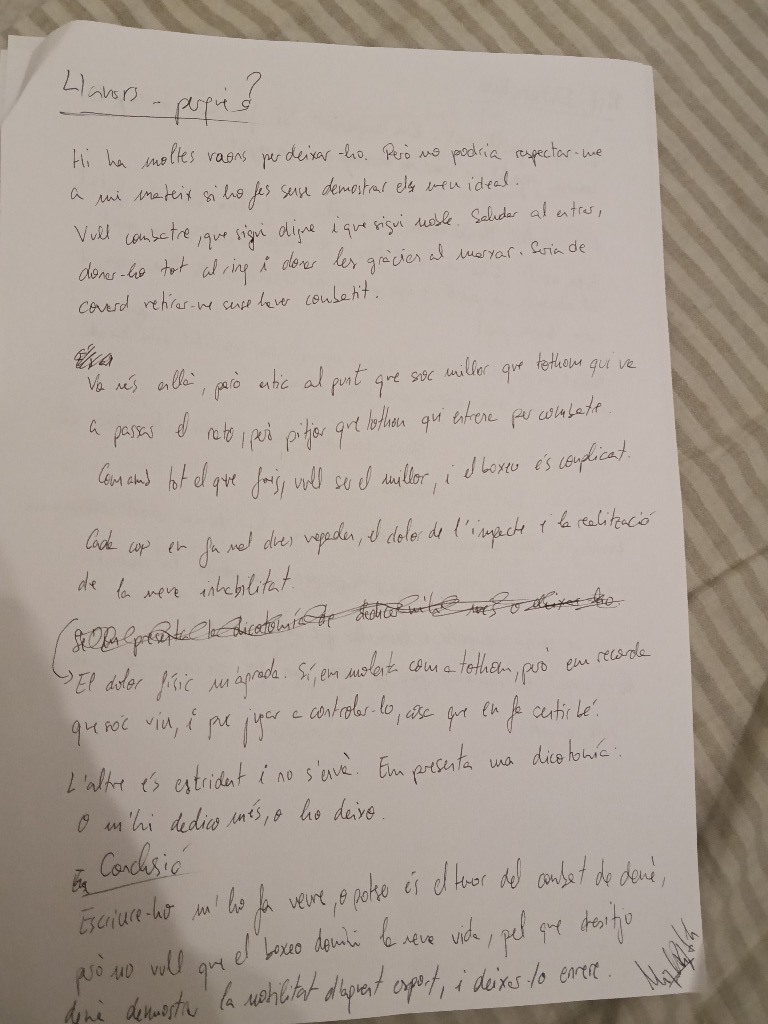 Llavors - perquè?
Hi ha moltes raons per deixar-ho. Però no podria respectar-me
a mi mateix si ho fes sense demostrar els meu ideal.
Vull combatre, que sigui digne i que sigui noble. Saludar al entrar,
donar-ho tot al ring i donar les gràcies al marxar. Seria de
covard retirar-me sense haver combatit.
Va més enllà, però estic al punt que soc millor que tothom qui va
a passar el rato, però pitjor que tothom qui entrena per combatre.
Com amb tot el que faig, vull ser el millor, i el boxeo és complicat.
Cada cop em fa mal dues vegades, el dolor de l'impacte i la realització
de la meva inhabilitat.
presenta la dicotomía de dedicar-m'hi més o deixar-ho.
El dolor físic m'agrada. Sí, em molesta com a tothom, però em recorda
que soc viu, i puc jugar a controlar-lo, cosa que em fa sentir bé.
L'altre és estrident i no s'en và. Em presenta una dicotomía:
O m'hi dedico més, o ho deixo.
Conclusió
Escriure-ho m'ho fa veure, o potser és el temor del combat de demà,
però no vull que el boxeo domini la meva vida, pel que desitjo
demà demostrar la nobilitat d'aquest esport, i deixar-lo enrere.